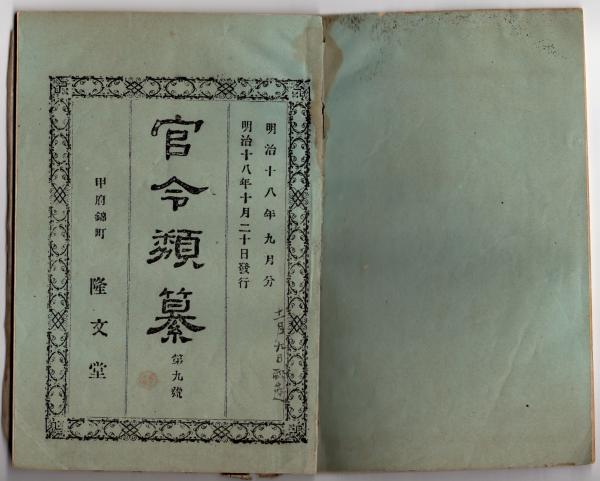 明治十八年九月分
明治十八年十月二十日發行
官令類纂
第九號
甲府錦町
隆文堂